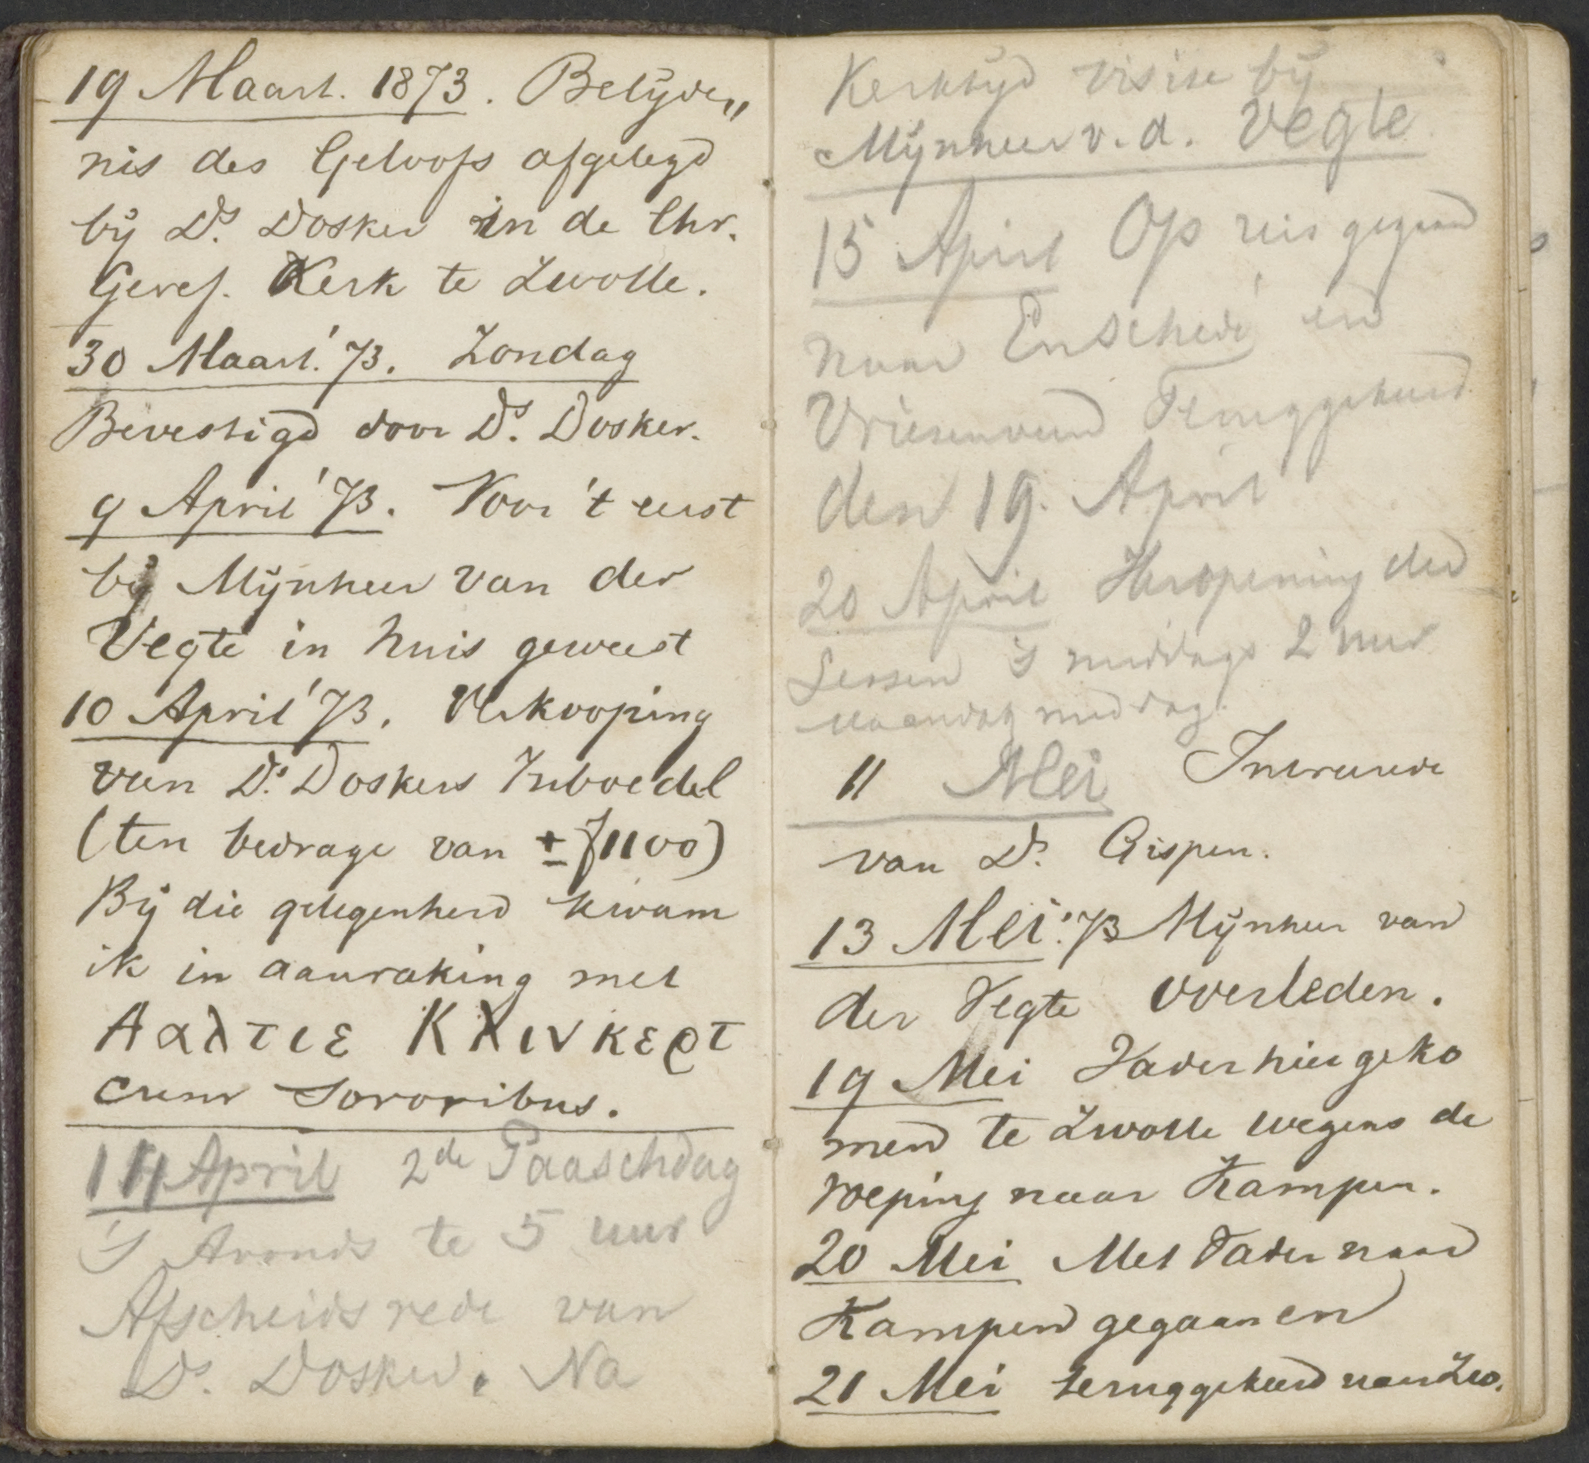 19 Maart. 1873. Belijde„
nis des Geloofs afgelegd
bij Ds. Dosker in de Chr.
Geref. Kerk te Zwolle.
30 Maart '73. Zondag
Bevestigd door Ds. Dosker.
9 April '73. Voor 't eerst
bij Mijnheer van der
Vegte in huis geweest
10 April '73. Verkooping
van Ds. Doskers Inboedel
(ten bedrage van ± ƒ1100)
Bij die gelegenheid kwam
ik in aanraking met
Ααλτιε Κλινκερτ
cum Sororibus.
14 April 2de Paaschdag
's Avonds te 5 uur
Afscheidsrede van
Ds. Dosker. Na
Kerktijd visite bij
Mijnheer v. d. Vegte
15 April Op reis gegaan
naar Enschedé en
Vriesenveen Teruggekeerd
den 19. April
20 April Heropening der
Lessen 's middags 2 uur
Maandag middag.
11 Mei Intreerede
van Ds. Gispen.
13 Mei '73 Mijnheer van
der Vegte overleden.
19 Mei Vader hier geko
men te Zwolle wegens de
roeping naar Kampen.
20 Mei Met Vader naar
Kampen gegaan en
21 Mei teruggekeerd naar Zw.